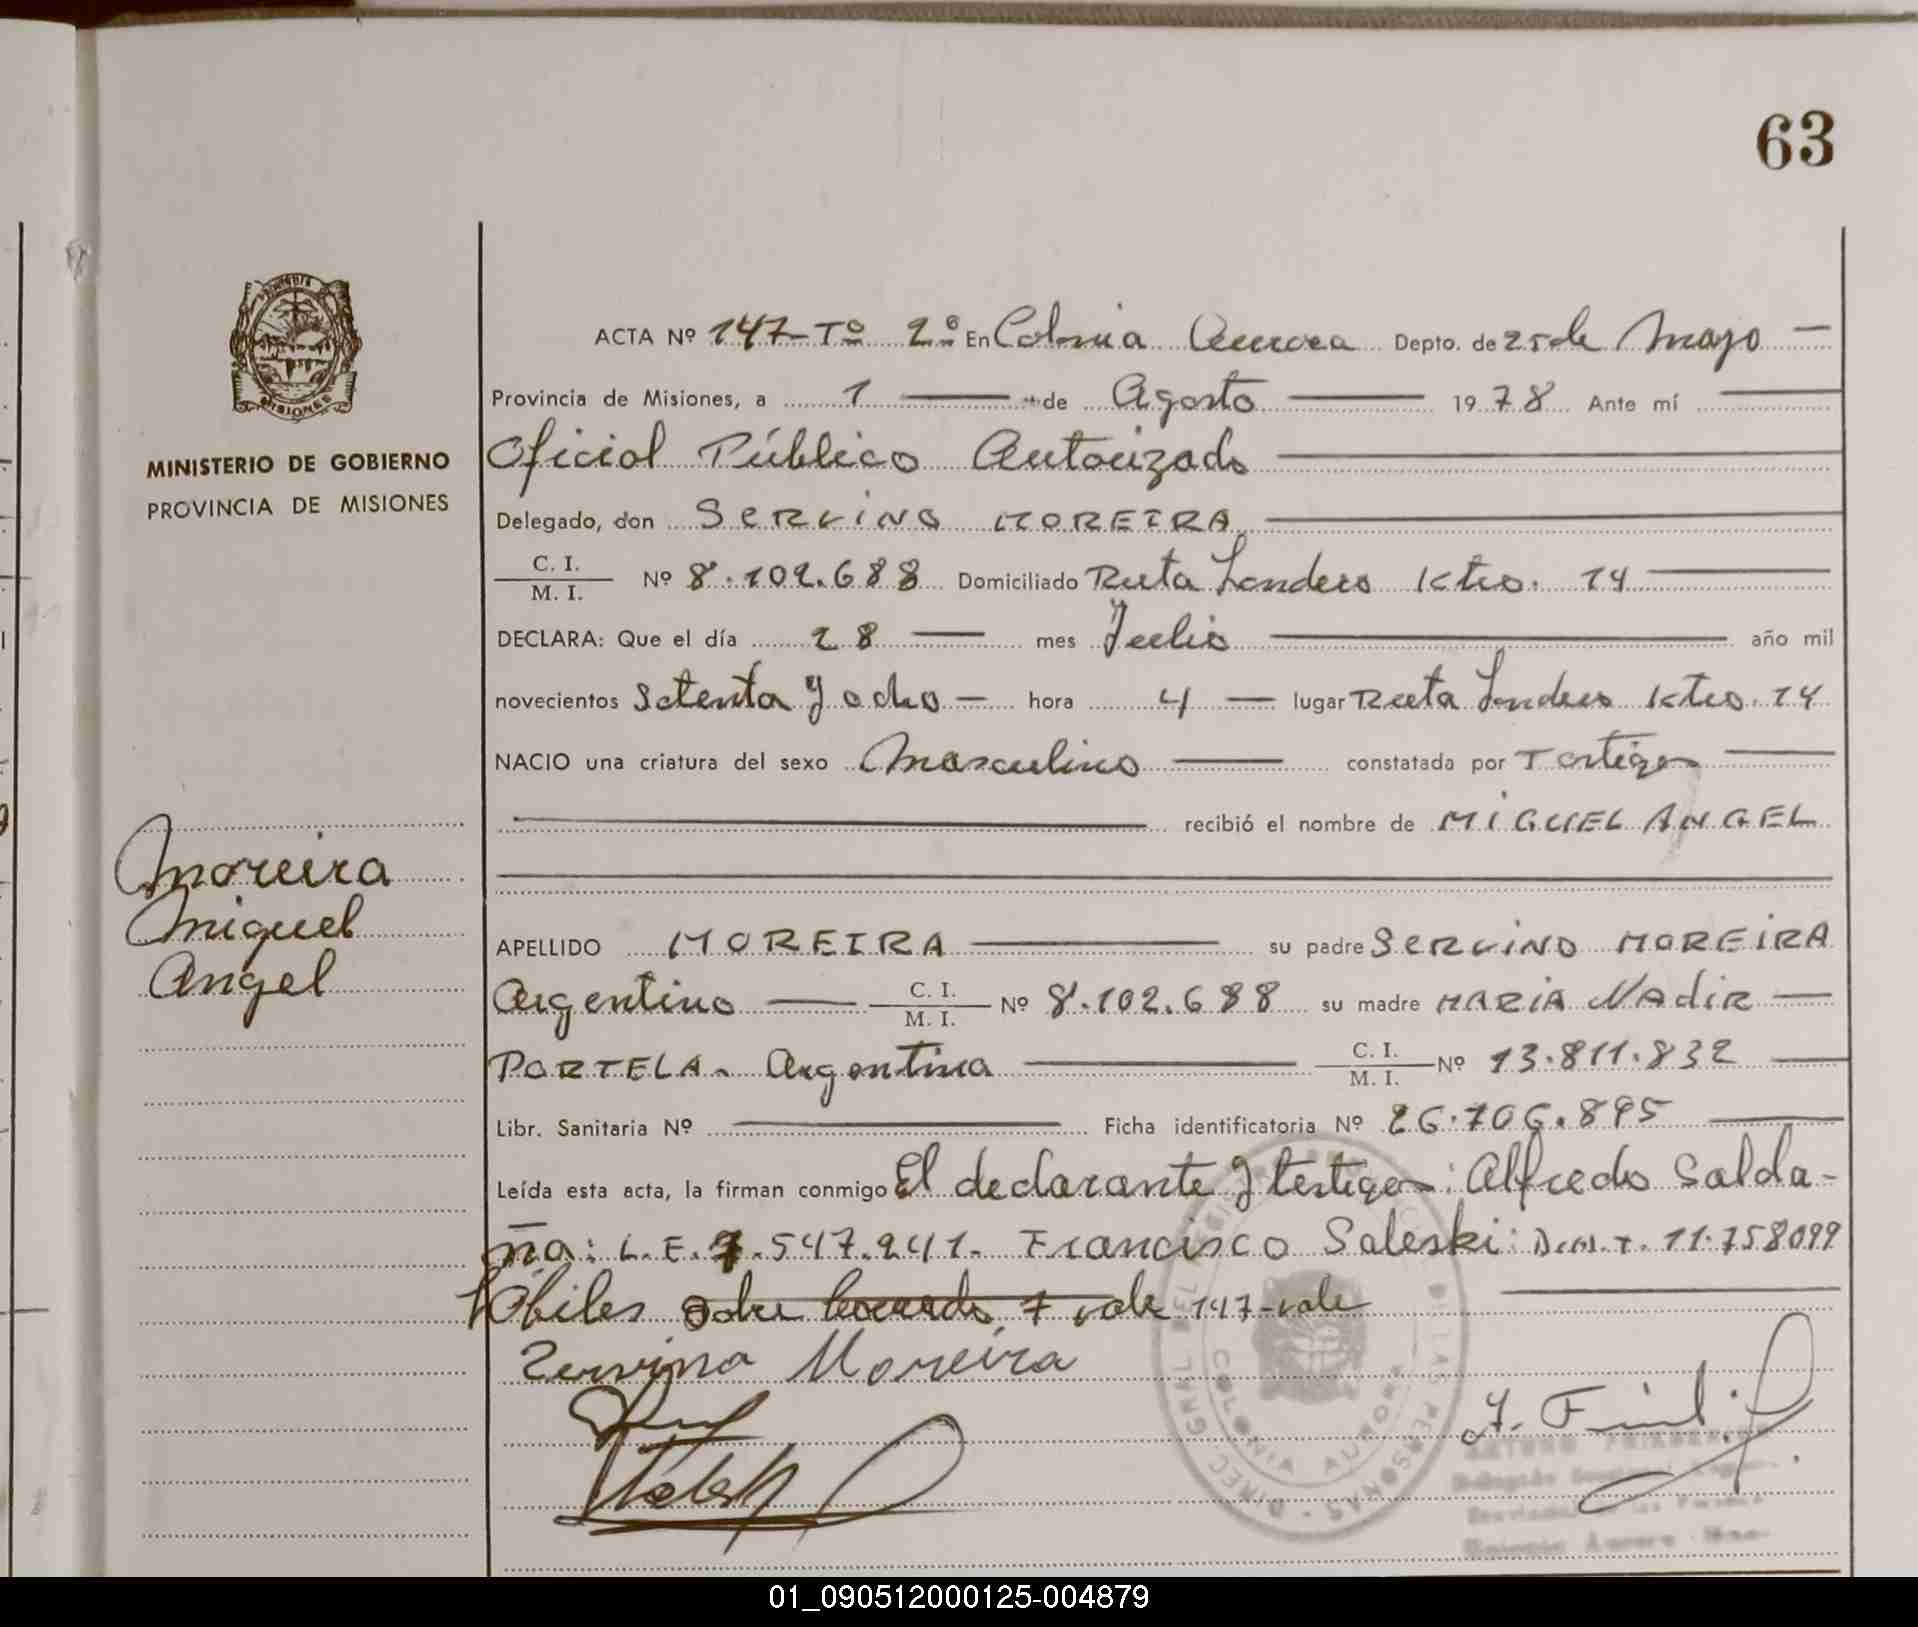 63
ACTA Nº 147-Tº 2º En Colonia Aurora Depto. de 25 de Mayo
Provincia de Misiones, a 1 de Agosto 1978 Ante mí
Oficial Público Autorizado
MINISTERIO DE GOBIERNO
PROVINCIA DE MISIONES
Delegado, don SERVINO MOREIRA
C. I.
M. I. Nº 8.102.688 Domiciliado Ruta Londero Ktro. 14
DECLARA: Que el día 28 mes Julio año mil
novecientos Setenta y ocho hora 4 lugar Ruta Londero Ktro. 14
NACIO una criatura del sexo Masculino constatada por Testigos
recibió el nombre de MIGUEL ANGEL
Moreira
Miguel
Angel
APELLIDO MOREIRA su padre SERVINO MOREIRA
Argentino C. I.
M. I. Nº 8.102.688 su madre MARIA NADIR
PORTELA. Argentina C. I.
M. I. Nº 13.811.832
Libr. Sanitaria Nº Ficha identificatoria Nº 26.706.895
Leída esta acta, la firman conmigo El declarante y testigos: Alfredo Salda-
ña: L.E. 7.547.241. Francisco Saleski: 11.758099
Hábiles sobre borrado, 7 vale 147-vale
Zervino Moreira
DIREC GNAL DEL REGISTRO DE LAS PERSONAS
COLONIA AURORA
01_090512000125-004879